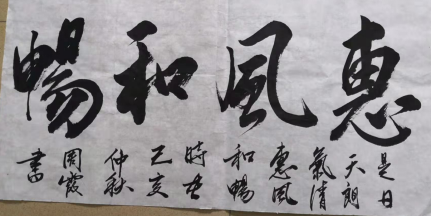 惠風和暢
是日
天朗
氣清
惠風
和暢
時在
己亥
仲秋
周霞
書